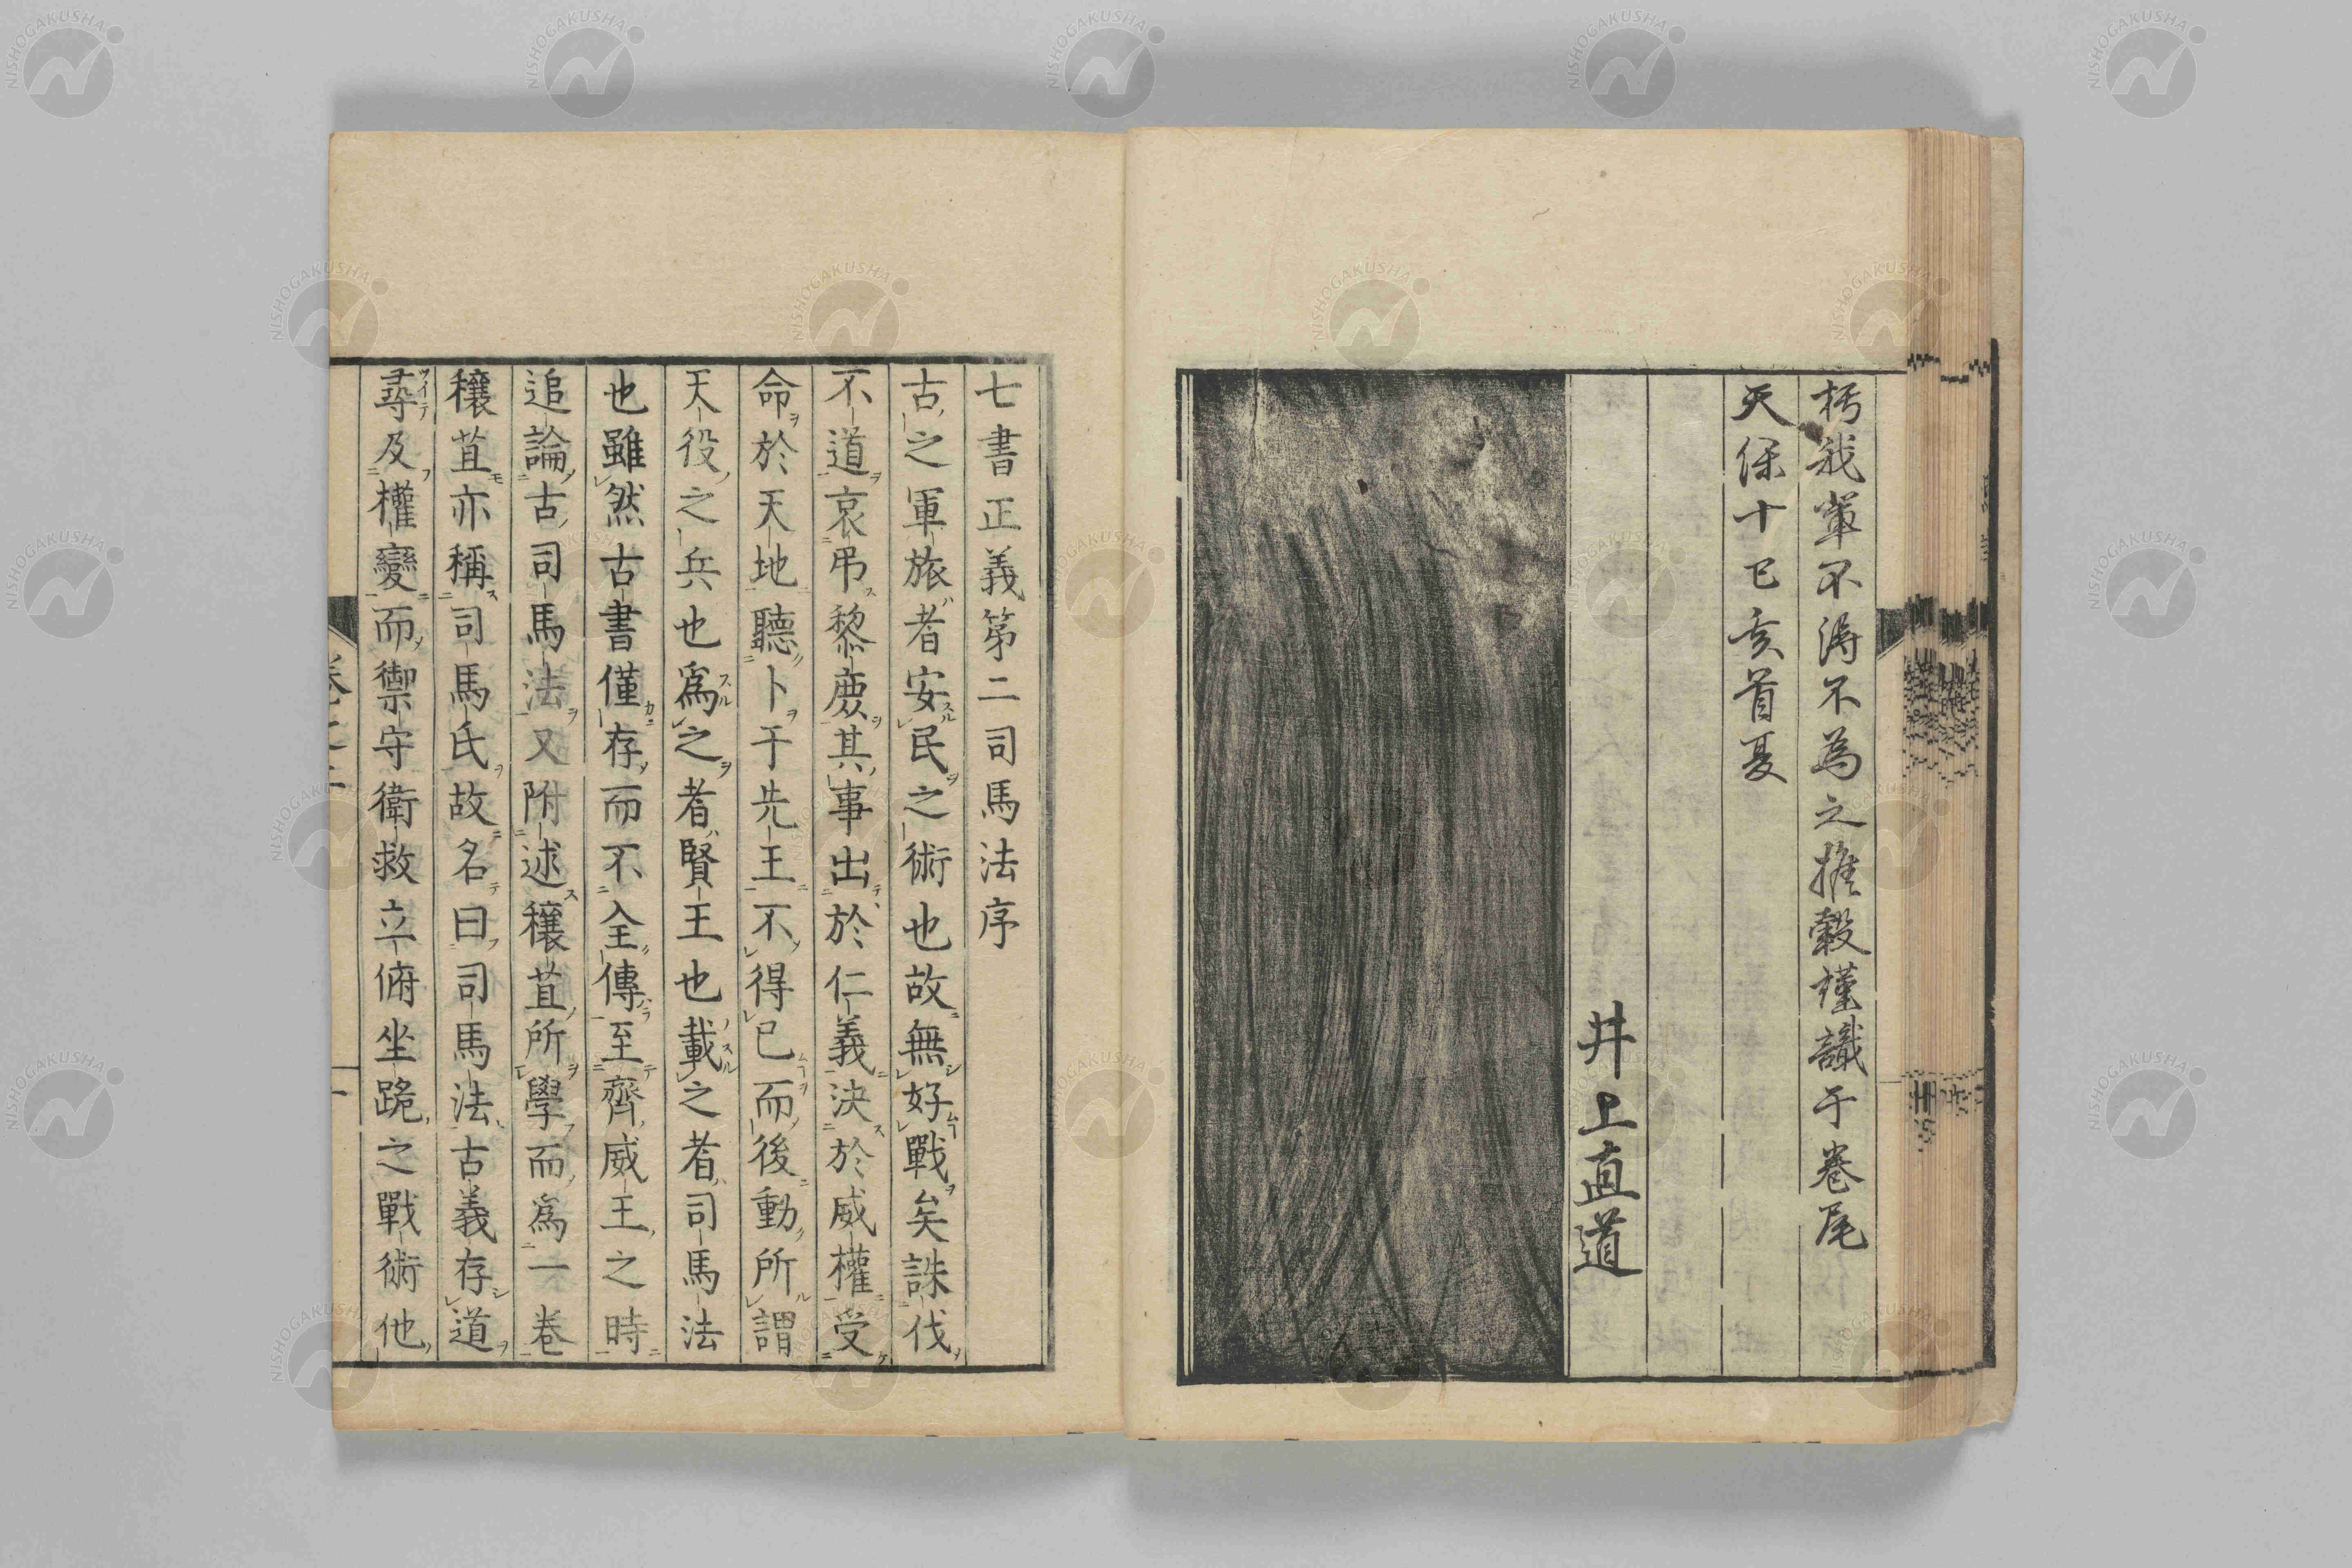 朽我輩不得不為之推轂謹識于卷尾
天保十己亥首夏
井上直道
七書正義第二司馬法序
古之軍旅者安民之術也故無好戰矣誅伐
不道哀弔黎庶其事出於仁義決於威權受
命於天地聽卜于先王不得已而後動所謂
天役之兵也爲之者賢王也載之者司馬法
也雖然古書僅存而不全傳至齊威王之時
追論古司馬法又附述穰苴所學而爲一卷
穰苴亦稱司馬氏故名曰司馬法古義存道
尋及權變而禦守衛救立俯坐跪之戰術他